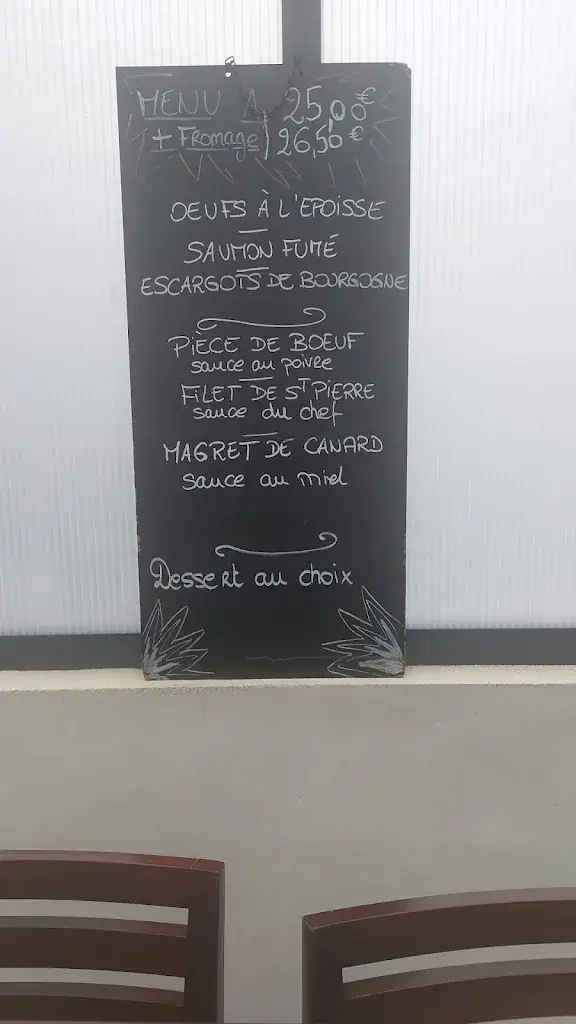 MENU A 25,00€
+ Fromage 26,50€
OEUFS À L'EPOISSE
SAUMON FUMÉ
ESCARGOTS DE BOURGOGNE
PIÈCE DE BOEUF
sauce au poivre
FILET DE ST PIERRE
sauce du chef
MAGRET DE CANARD
sauce au miel
Dessert au choix